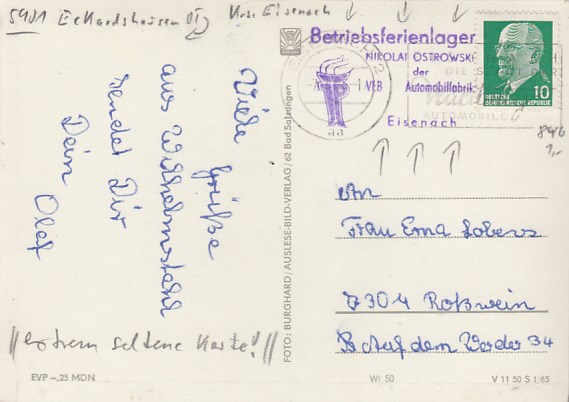 5901 Eckardshausen Krs. Eisenach
Betriebsferienlager
NIKOLAI OSTROWSKI
der
VEB Automobilfabrik
Eisenach
DEUTSCHE
DEMOKRATISCHE REPUBLIK
10
AUTOMOBILE
aa
Viele Grüße
aus Wilhelmsthal
sendet Dir
Dein Olaf
An
Frau Erna Lobers
7304 Roßwein
Auf dem Werder 34
//extrem seltene Karte!//
FOTO: BURGHARD/AUSLESE-BILD-VERLAG/62 Bad Salzungen
EVP –,25 MDN
WI 50
V 11 50 S 1/65